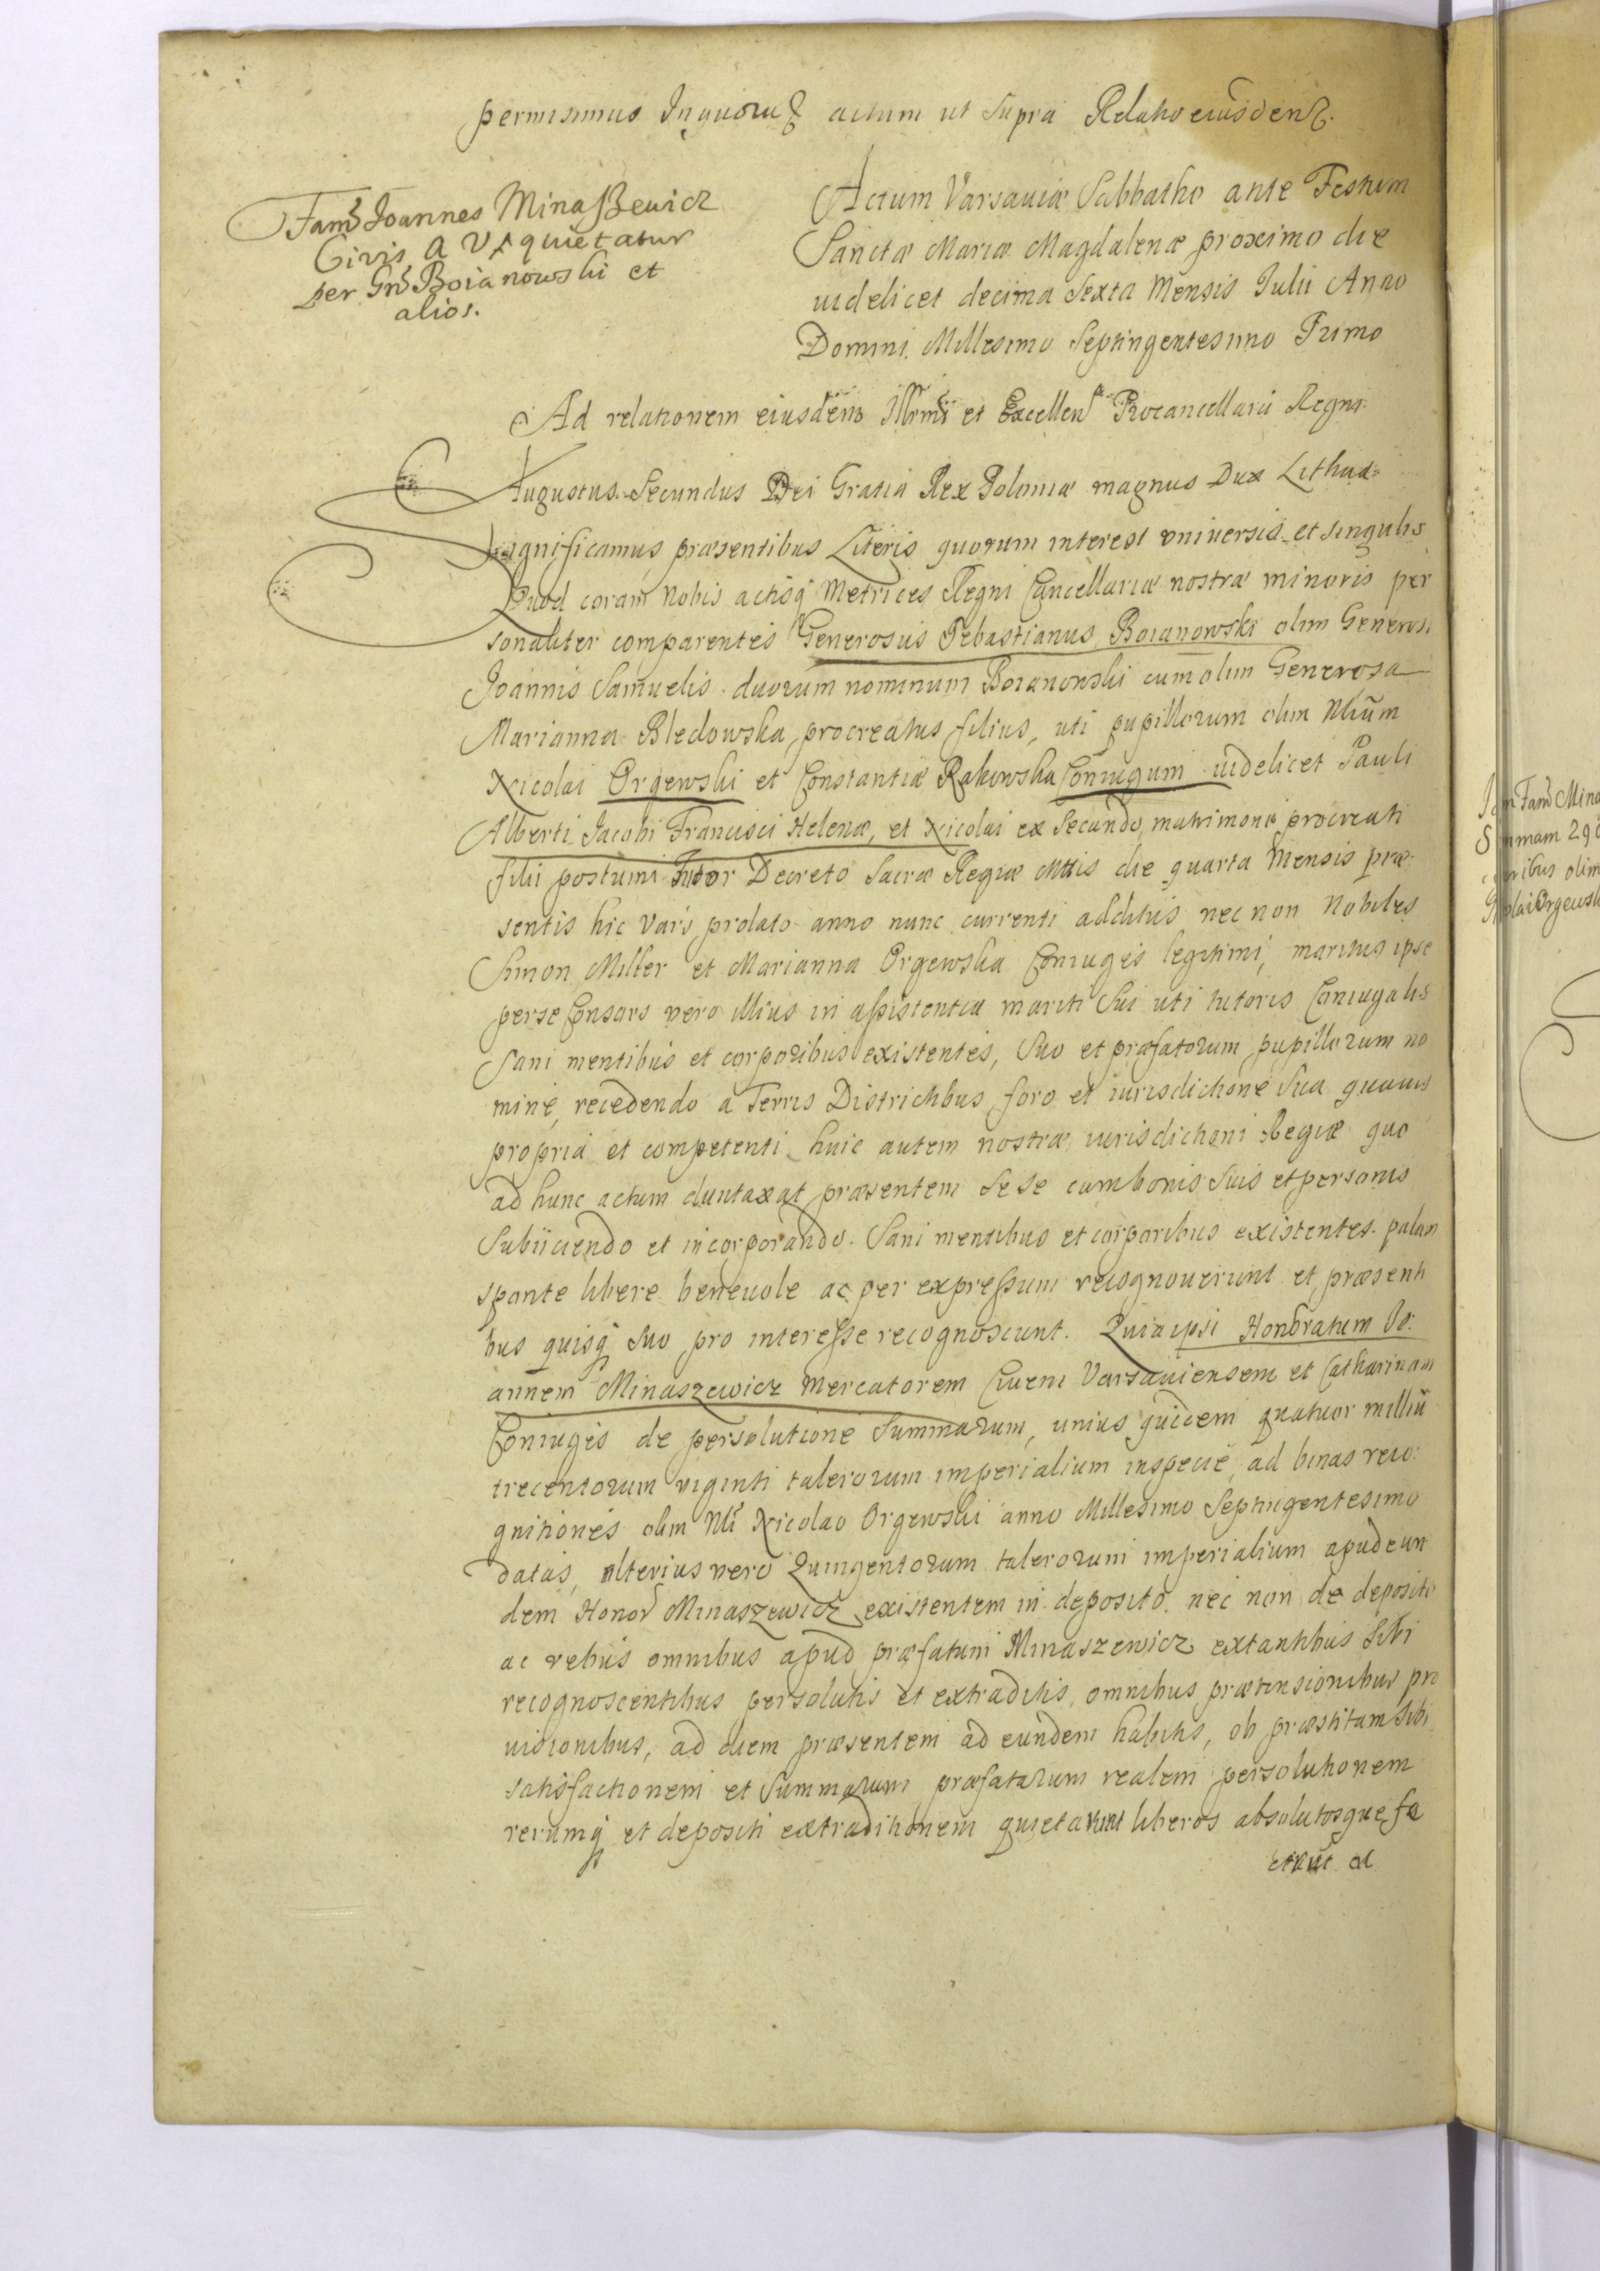 permisimus In quoru actum ut supra Relatio eiusdem.
Fam Joannes Minaszewicz
Civis A V quietatur
per Gn Boianowski et
alios.
Actum Varsaviæ Sabbatho ante Festum
Sanctæ Mariæ Magdalenæ proximo die
uidelicet decima sexta Mensis Julii Anno
Domini Millesimo Septingentesimo Primo
Ad relationem eiusdem Illrmi et Excellen Procancellarii Regni
Augustus Secundus Dei Gratia Rex Poloniæ magnus Dux Lithuæ
Significamus præsentibus Literis quorum interest universis et singulis
Quod coram Nobis actisq Metrices Regni Cancellariæ nostræ minoris per
sonaliter comparentes Generosus Sebastianus Boianowski olim Generosi
Joannis Samuelis duorum nominum Boianowski cum olim Generosa
Marianna Bledowska procreatus filius, uti pupillorum olim Nlium
Nicolai Orgewski et Constantiæ Rakowska Coniugum uidelicet Pauli
Alberti Jacobi Francisci Helenæ, et Nicolai ex Secundo matrimonio procreati
filii postumi Tutor Decreto Sacræ Regiæ Mttis die quarta Mensis præ
sentis hic Vars prolato anno nunc currenti additus nec non Nobiles
Simon Miller et Marianna Orgewska Coniuges legitimi, maritus ipse
per se Consors vero illius in assistentia mariti sui uti tutoris Coniugalis
Sani mentibus et corporibus existentes, suo et præfatorum pupillorum no
mine, recedendo a Terris Districtibus foro et iurisdictione sua quauis
propria et competenti huic autem nostræ iurisdictioni Regiæ quo
ad hunc actum duntaxat præsentem sese cum bonis suis et personis
Subiiciendo et incorporando. Sani mentibus et corporibus existentes. palam
sponte libere beneuole ac per expressum recognouerunt et præsenti
bus quisq suo pro interesse recognoscunt. Quia ipsi Honoratum Jo:
annem Minaszewicz Mercatorem Ciuem Varsauiensem et Catharinam
Coniuges de persolutione Summarum, unius quidem quatuor milliu
trecentorum viginti talerorum imperialium in specie, ad binas reco:
gnitiones olim Nli Nicolao Orgewski anno Millesimo Septingentesimo
datas, alterius vero Quingentorum talerorum imperialium apud eun
dem Honor Minaszewicz existentem in deposito nec non de deposito
ac rebus omnibus apud præfatum Minaszewicz extantibus sibi
recognoscentibus persolutis et extraditis, omnibus prætensionibus pro
uisionibus, ad diem præsentem ad eundem habitis, ob præstitam sibi
satisfactionem et Summarum præfatarum realem persolutionem
rerumq et depositi extraditionem quietarunt liberos absolutosque fe
cerunt ac
Fam Mina
mam
ribus olim
olai Orgewsk